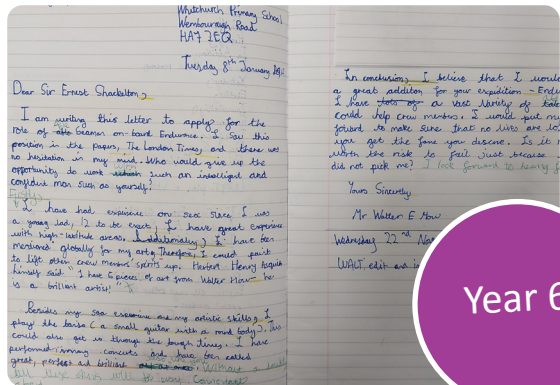 Whitchurch Primary School
Wembourough Road
HA7 2EQ
Tuesday 8th January
Dear Sir Ernest Shackelton,
I am writing this letter to apply for the
role of seaman on-board Endurance. I saw this
position in the papers, The London Times, and there was
no hesitation in my mind. Who would give up the
opportunity to work such an intelligent and
confident man such as yourself?
Firstly
I have had experience on sea since I was
a young lad, 12 to be exact. I have great experience
with high-latitude areas. Additionally, I have been
mentioned globally for my art. Therefore, I could paint
to lift other crew members spirits up. Herbert Henry
himself said " I have 6 pieces of art from Walter How he
is a brilliant artist!"
Besides my sea experience and my artistic skills, I
play the banjo (a small guitar with a round body). This
could also get us through the tough times. I have
performed in many concerts and have been called
great, perfect and brilliant
In conclusion, I believe that I would
a great addition for your expidition -
I have a vast variety of
could help crew members. I would put my
forward to make sure that no lives are
you get the fame you deserve. Is it
worth the risk to fail just because
did not pick me? I look forward to
Yours Sincerely
Mr Walter E How
Wednesday 22nd
WALT edit and
Year 6